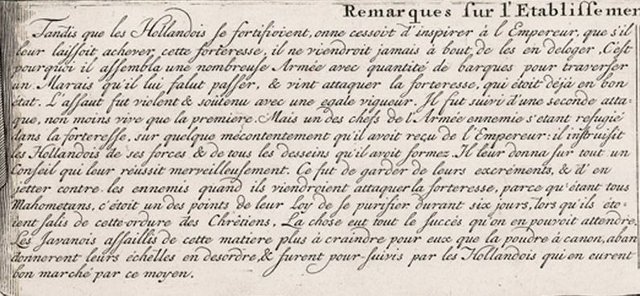 Remarques sur l'Etablissemen
Tandis que les Hollandois se fortifioient, on ne cessoit d'inspirer à l'Empereur, que s'il
leur laissoit achever cette forteresse, il ne viendroit jamais à bout de les en deloger. C'est
pourquoi il assembla une nombreuse Armée avec quantité de barques pour traverser
un Marais qu'il lui falut passer, & vint attaquer la forteresse, qui étoit déja en bon
état. L'assaut fut violent & soûtenu avec une egale vigueur. Il fut suivi d'une seconde atta-
que, non moins vive que la premiere. Mais un des chefs de l'Armée ennemie s'etant refugié
dans la forteresse, sur quelque mécontentement qu'il avoit reçu de l'Empereur: il instruisit
les Hollandois de ses forces & de tous les desseins qu'il avoit formez. Il leur donna sur tout un
Conseil qui leur réussit merveilleusement. Ce fut de garder de leurs excréments, & d'en
jetter contre les ennemis quand ils viendroient attaquer la forteresse, parce qu'étant tous
Mahometans, c'étoit un des points de leur Loy de se purifier durant six jours, lors qu'ils éto-
ient salis de cette ordure des Chrétiens. La chose eut tout le succès qu'on en pouvoit attendre.
Les Javanois assaillis de cette matiere plus à craindre pour eux que la poudre à canon, aban
donnerent leurs échelles en desordre, & furent pour-suivis par les Hollandois qui en eurent
bon marché par ce moyen.